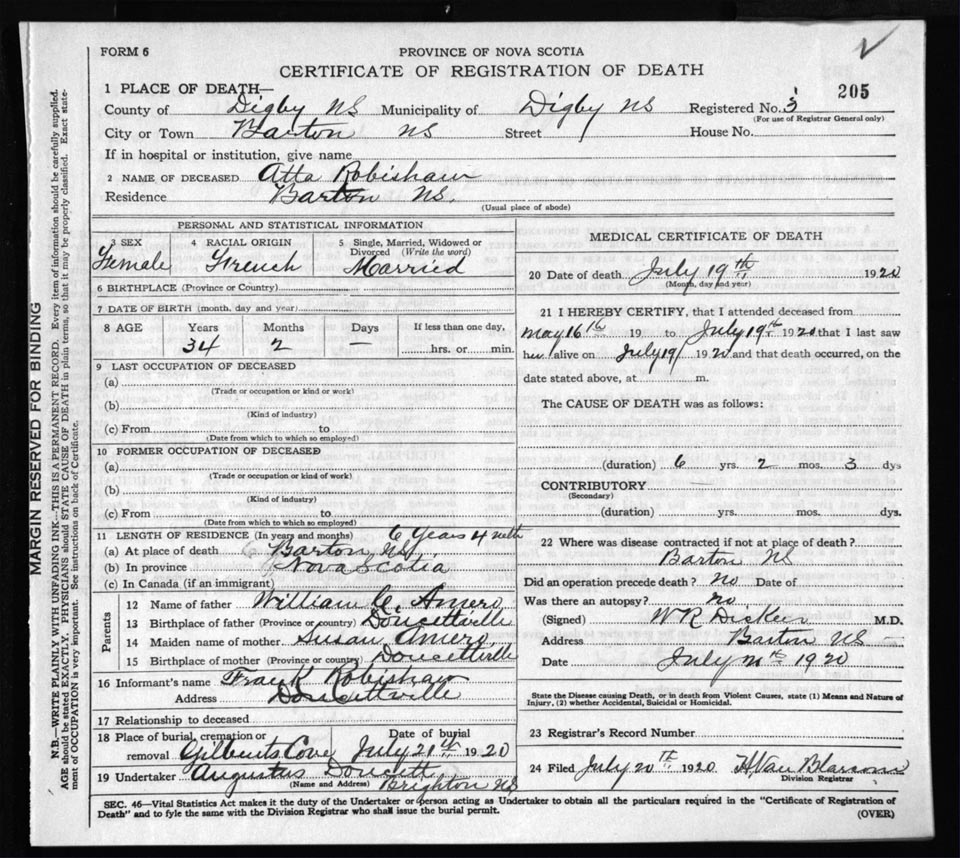 FORM 6
PROVINCE OF NOVA SCOTIA
CERTIFICATE OF REGISTRATION OF DEATH
205
1 PLACE OF DEATH—
County of Digby NS Municipality of Digby NS Registered No. 3
(For use of Registrar General only)
City or Town Barton NS Street House No.
If in hospital or institution, give name
2 NAME OF DECEASED Atta Robishaw
Residence Barton NS.
(Usual place of abode)
PERSONAL AND STATISTICAL INFORMATION
3 SEX 4 RACIAL ORIGIN 5 Single, Married, Widowed or Divorced (Write the word)
Female French Married
6 BIRTHPLACE (Province or Country)
7 DATE OF BIRTH (month, day and year)
8 AGE Years Months Days If less than one day,
34 2 — hrs. or min.
9 LAST OCCUPATION OF DECEASED
(a)
(Trade or occupation or kind of work)
(b)
(Kind of industry)
(c) From to
(Date from which to which so employed)
10 FORMER OCCUPATION OF DECEASED
(a)
(Trade or occupation or kind of work)
(b)
(Kind of industry)
(c) From to
(Date from which to which so employed)
11 LENGTH OF RESIDENCE (In years and months) 6 Years 4 mth
(a) At place of death Barton NS
(b) In province Nova Scotia
(c) In Canada (if an immigrant)
Parents
12 Name of father William C. Amero
13 Birthplace of father (Province or country) Doucettville
14 Maiden name of mother Susan Amero
15 Birthplace of mother (Province or country) Doucettville
16 Informant's name Frank Robishaw
Address Doucettville
17 Relationship to deceased
18 Place of burial, cremation or removal Gilberts Cove Date of burial July 21th 1920
19 Undertaker Augustus Doucett
(Name and Address) Brighton NS
MEDICAL CERTIFICATE OF DEATH
20 Date of death July 19th 1920
(Month, day and year)
21 I HEREBY CERTIFY, that I attended deceased from
May 16th 19 to July 19th 1920 that I last saw
her alive on July 19 1920 and that death occurred, on the
date stated above, at m.
The CAUSE OF DEATH was as follows:
(duration) 6 yrs. 2 mos. 3 dys
CONTRIBUTORY —
(Secondary)
(duration) yrs. mos. dys.
22 Where was disease contracted if not at place of death?
Barton NS
Did an operation precede death? no Date of
Was there an autopsy? no
(Signed) W R M.D.
Address Barton NS
Date July 1920
State the Disease causing Death, or in death from Violent Causes, state (1) Means and Nature of
Injury, (2) whether Accidental, Suicidal or Homicidal.
23 Registrar's Record Number
24 Filed July 20th 1920
Division Registrar
SEC. 46—Vital Statistics Act makes it the duty of the Undertaker or person acting as Undertaker to obtain all the particulars required in the "Certificate of Registration of
Death" and to fyle the same with the Division Registrar who shall issue the burial permit.
(OVER)
MARGIN RESERVED FOR BINDING
N.B.—WRITE PLAINLY WITH UNFADING INK—THIS IS A PERMANENT RECORD. Every item of information should be carefully supplied.
AGE should be stated EXACTLY. PHYSICIANS should STATE CAUSE OF DEATH in plain terms, so that it may be properly classified. Exact state-
ment of OCCUPATION is very important. See instructions on back of Certificate.